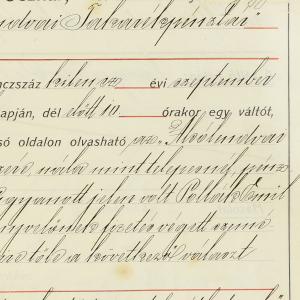 ndvai Takarékpénztár
nczszáz kilencz évi szeptember
apján, dél előtt 10 órakor egy váltót,
só oldalon olvasható az Alsólendvai
mint telepesnél, pénz
ugyanott jelen volt Pollák Emil
fizetés végett
a következő választ